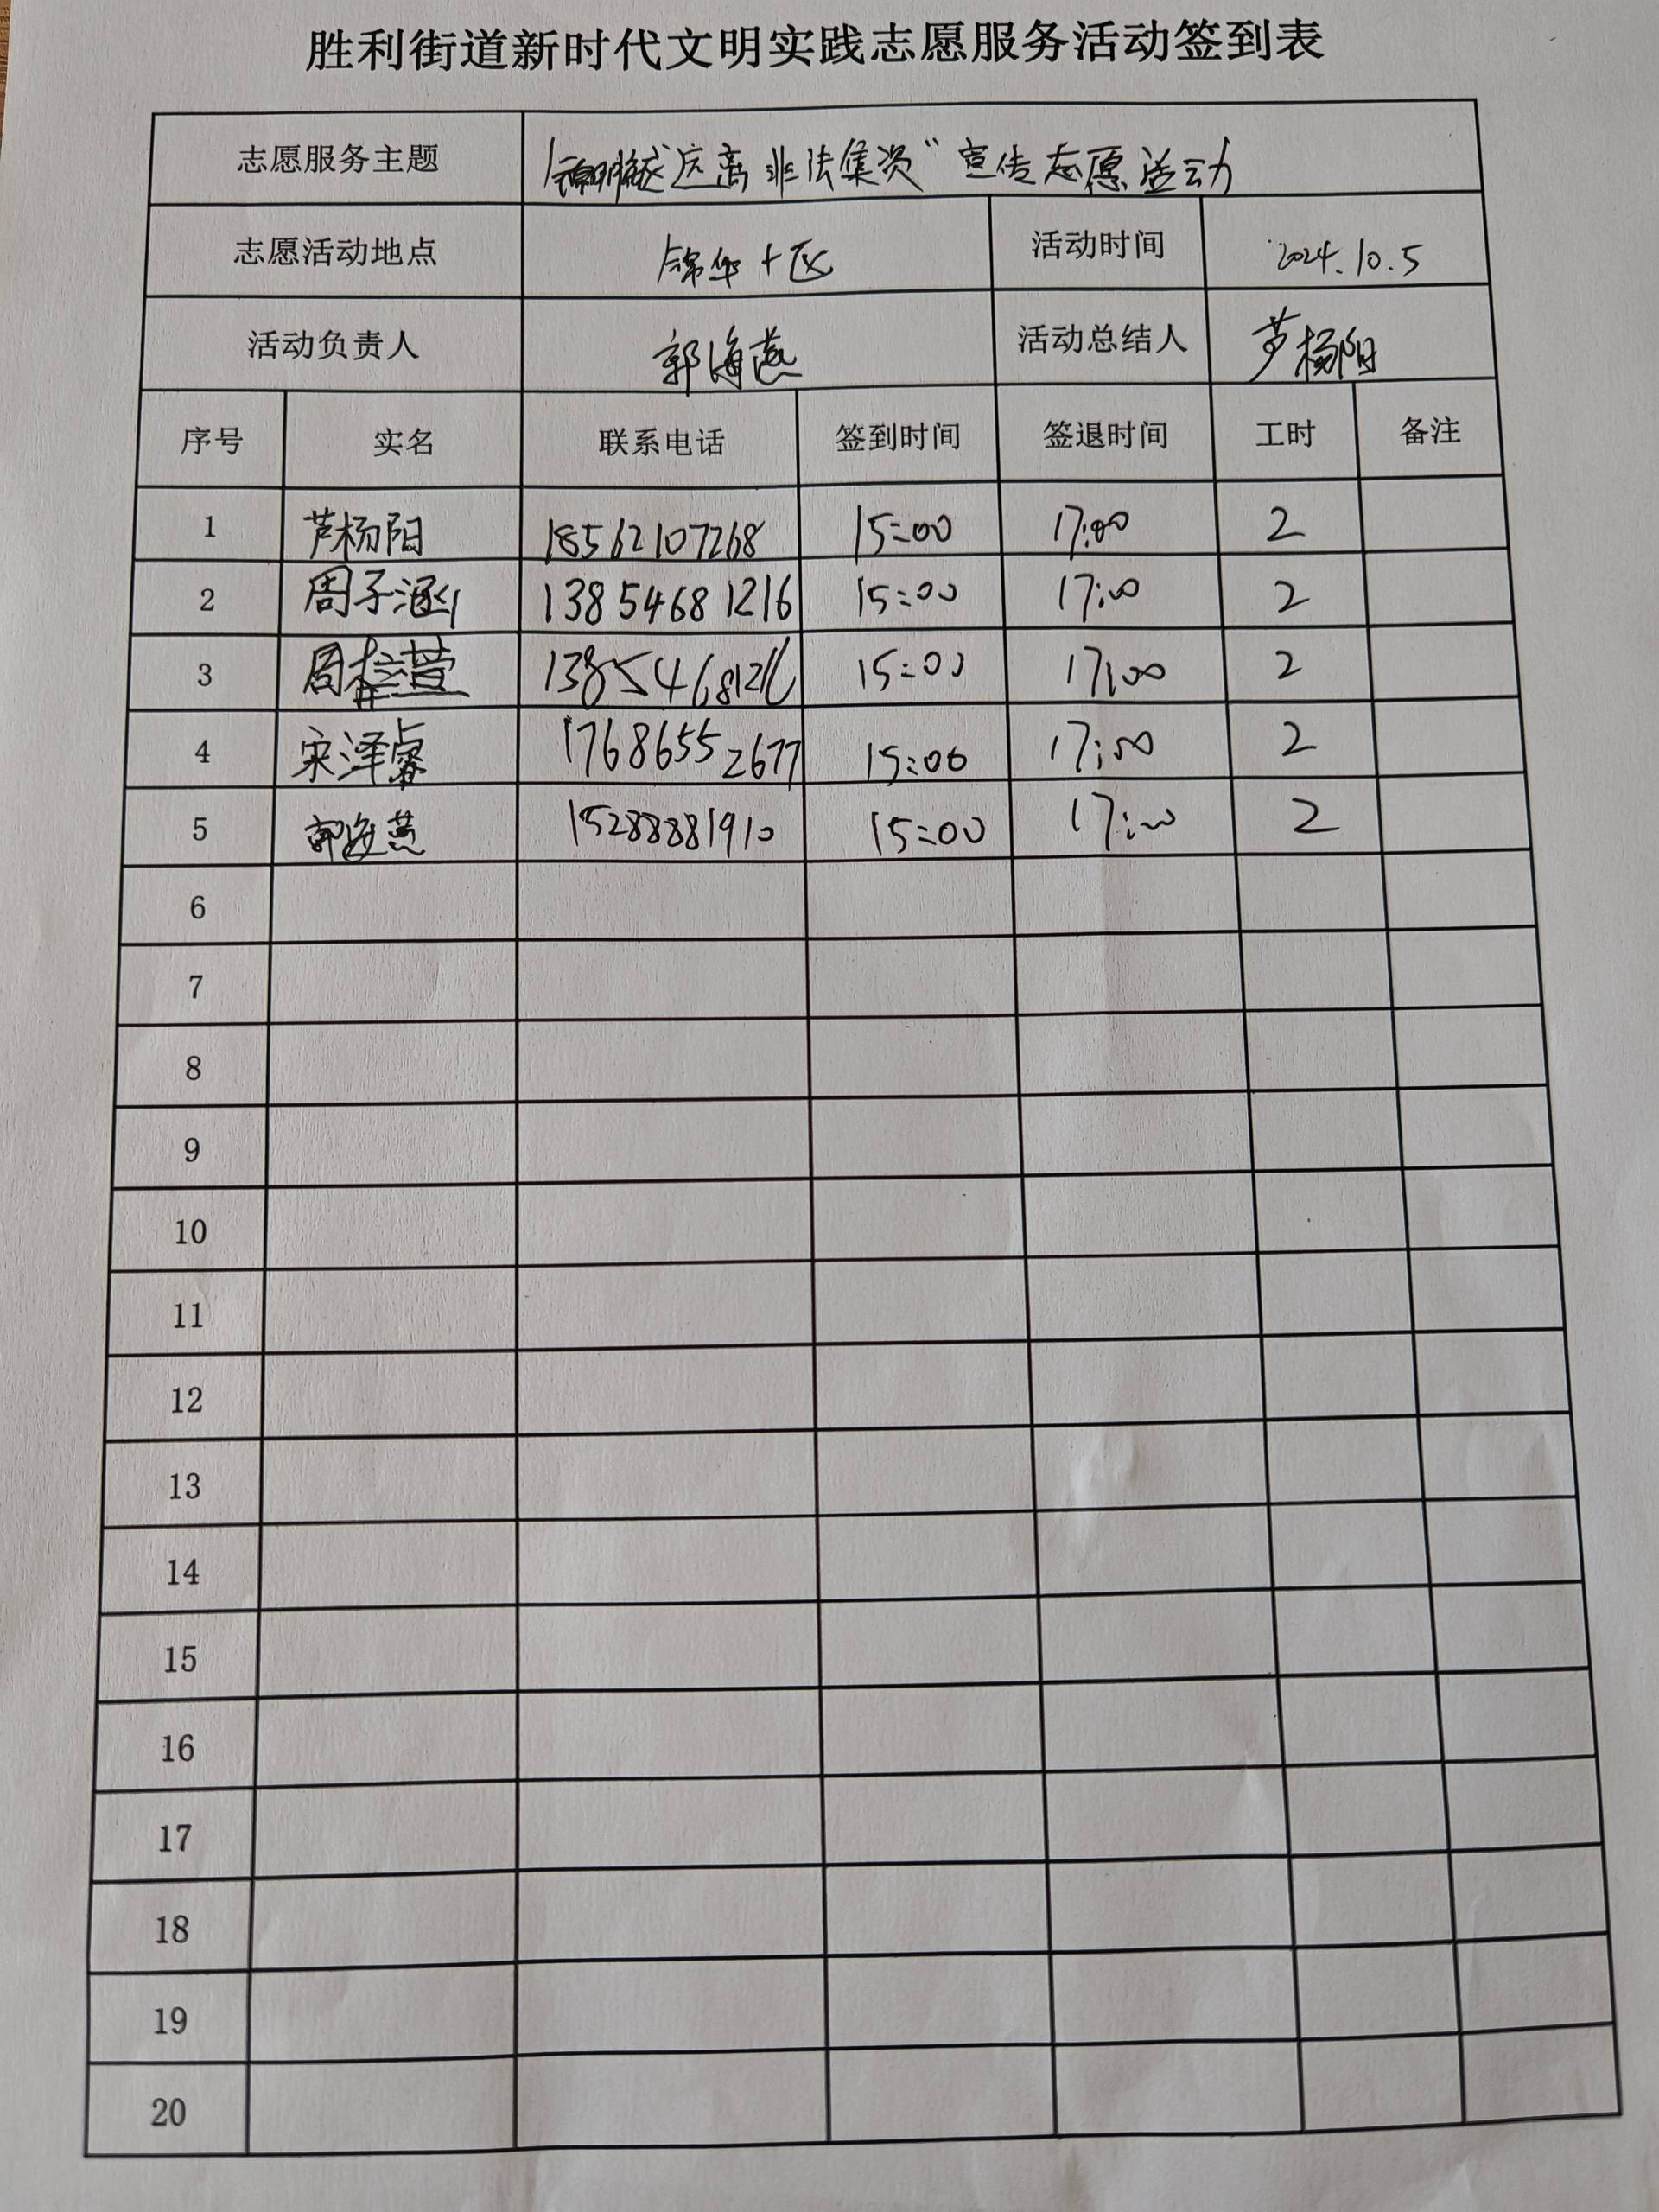 胜利街道新时代文明实践志愿服务活动签到表
志愿服务主题 远离非法集资”宣传志愿活动
志愿活动地点 锦华十区 活动时间 2024.10.5
活动负责人 郭海燕 活动总结人 芦杨阳
序号 实名 联系电话 签到时间 签退时间 工时 备注
1 芦杨阳 18562107268 15:00 17:00 2
2 周子涵 13854681216 15:00 17:00 2
3 周 13854681216 15:00 17:00 2
4 宋泽睿 17686552677 15:00 17:00 2
5 郭海燕 15288881910 15:00 17:00 2
6
7
8
9
10
11
12
13
14
15
16
17
18
19
20